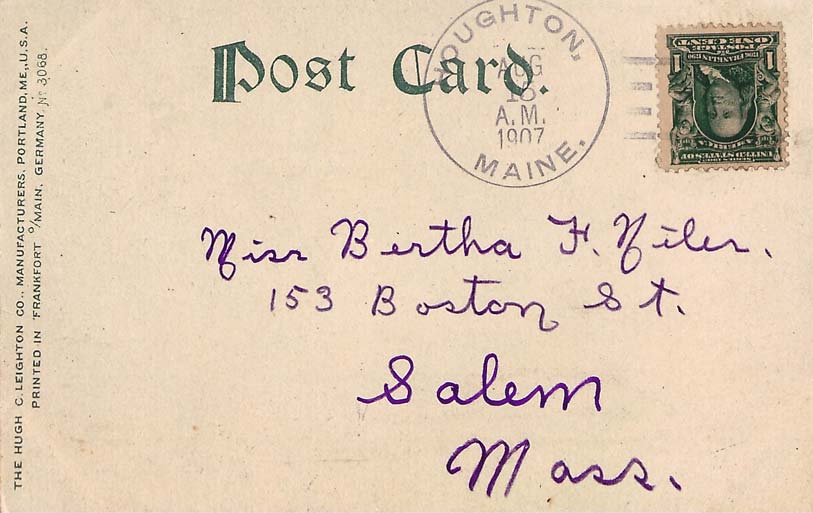 Post Card.
HOUGHTON,
AUG
18
A.M.
1907
MAINE.
SERIES 1902
UNITED STATES OF
AMERICA
1 1
POSTAGE
ONE CENT
Miss Bertha F. Niles.
153 Boston St.
Salem
Mass.
THE HUGH C. LEIGHTON CO., MANUFACTURERS, PORTLAND, ME., U.S.A.
PRINTED IN FRANKFORT o/MAIN, GERMANY. No 3068.